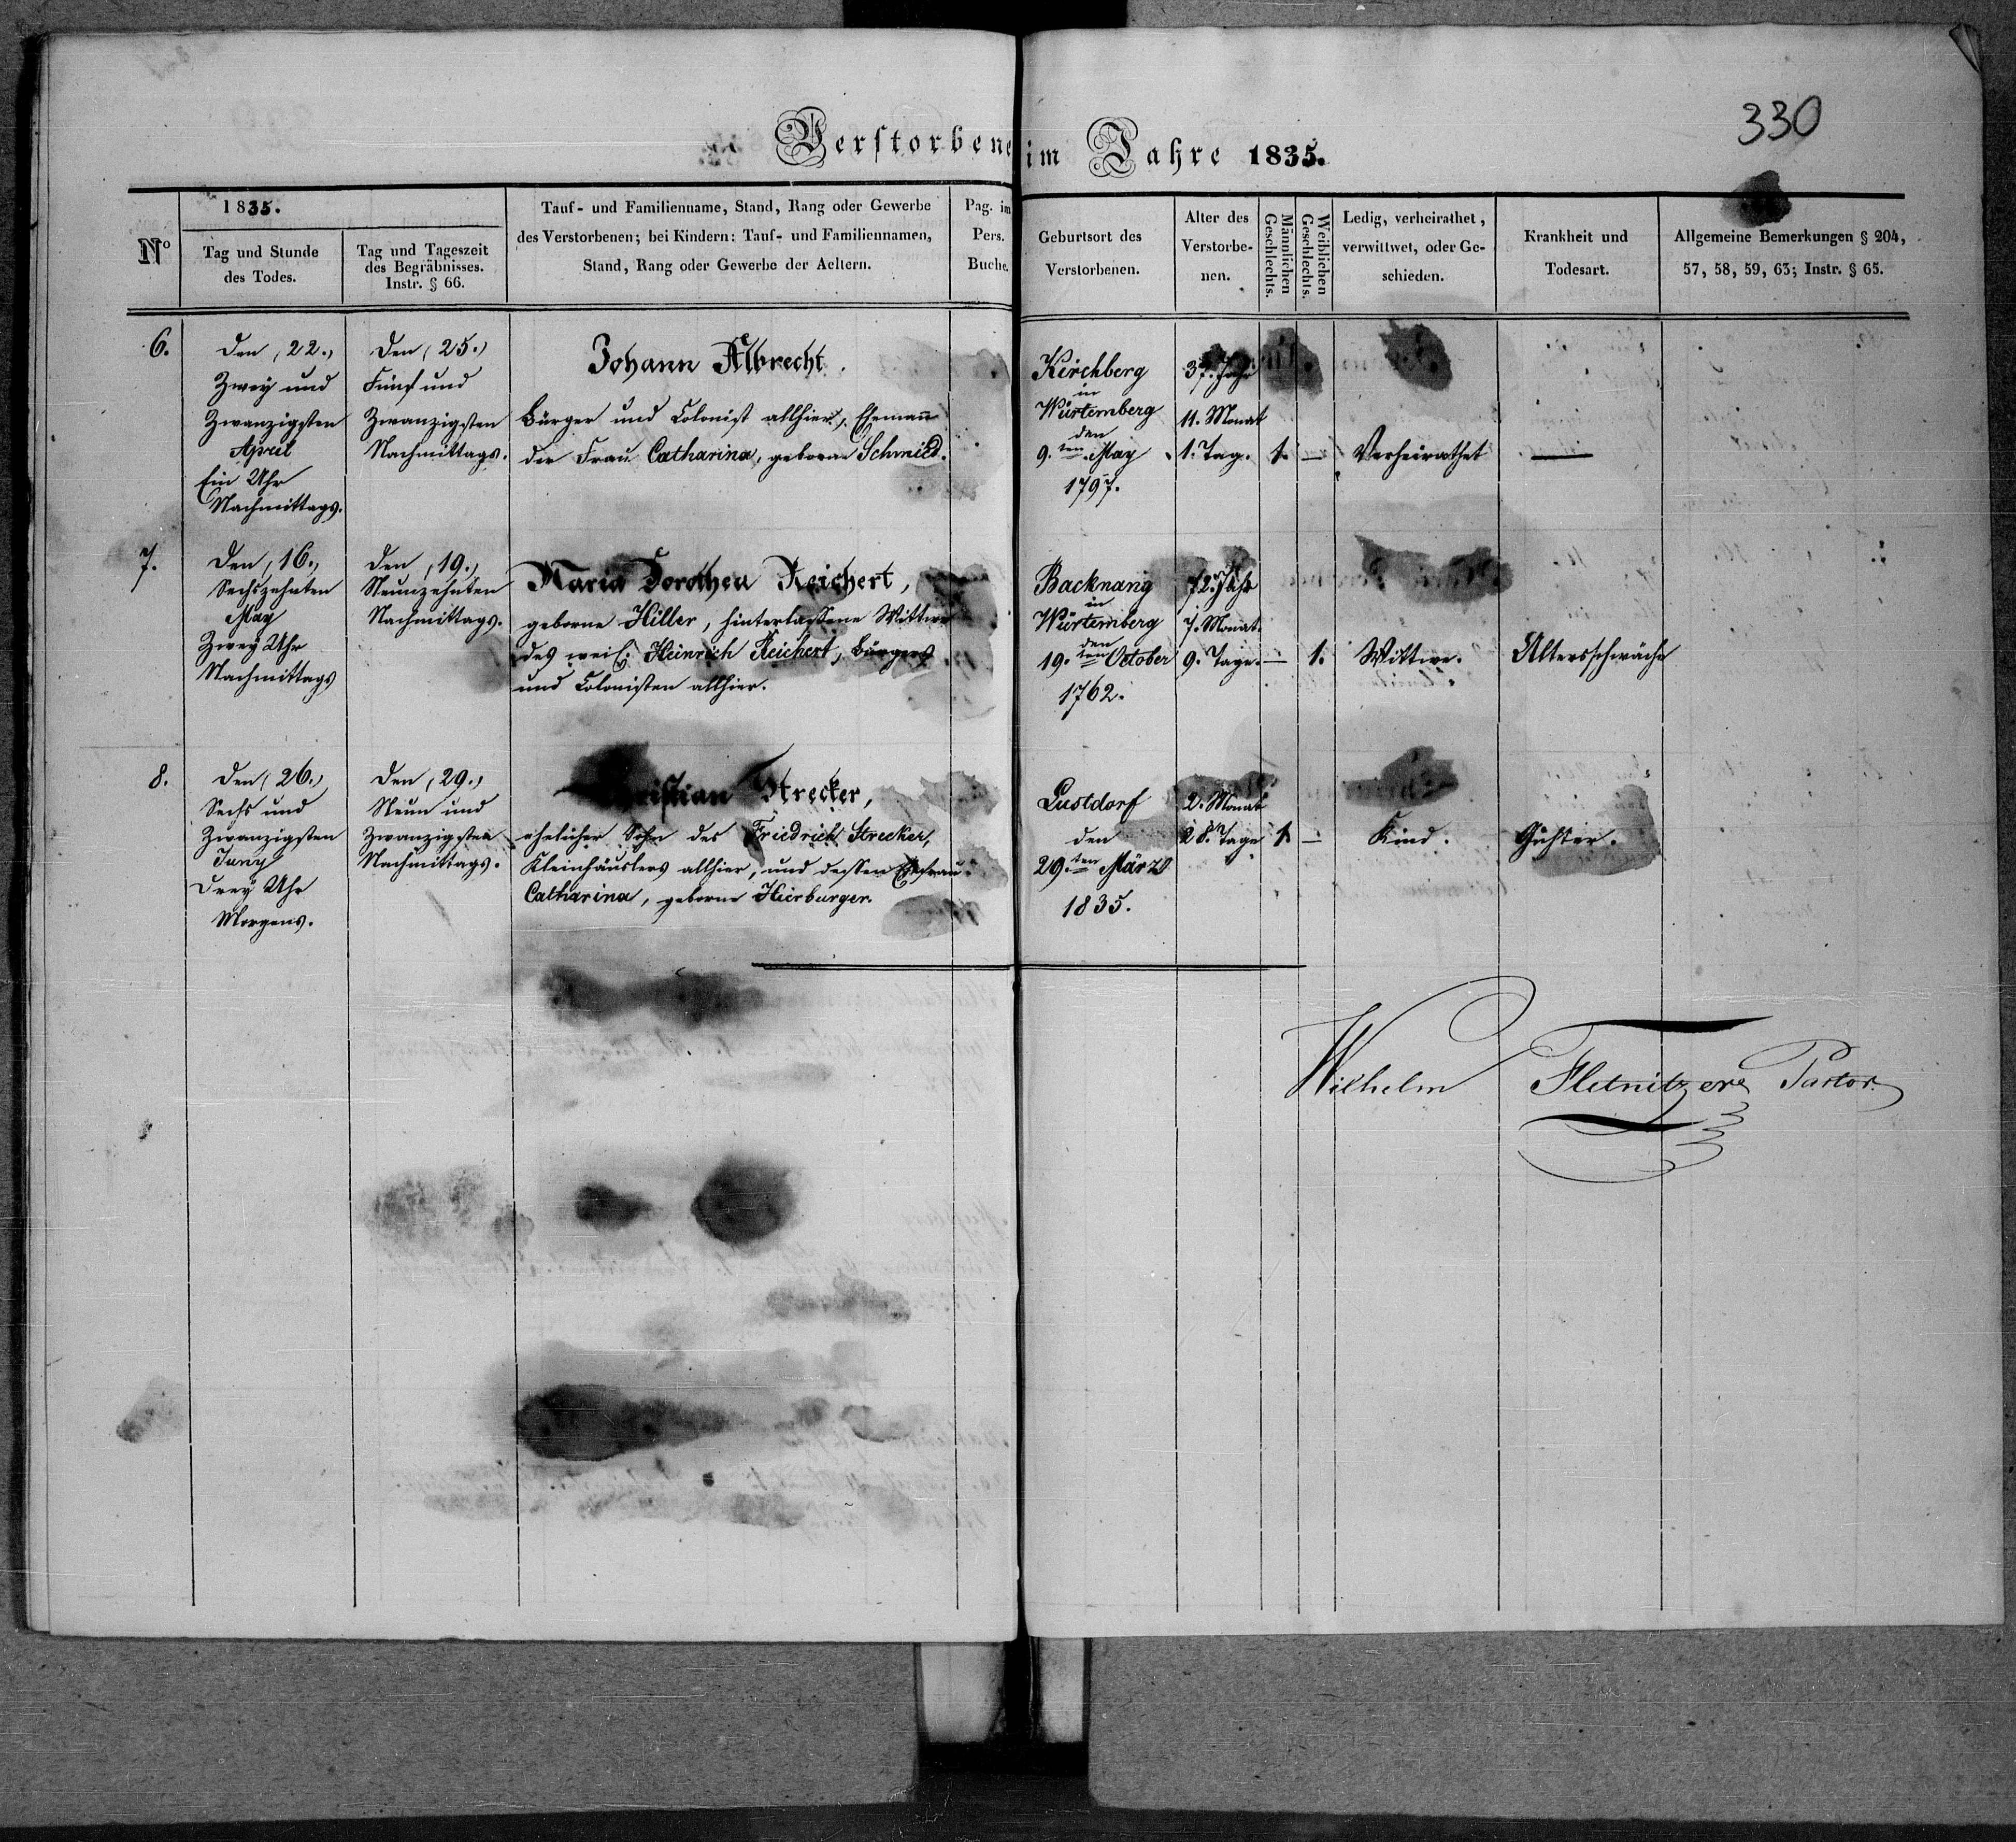 330
Verstorbene im Jahre 1835.
Nº
1835.
Tag und Stunde
des Todes.
Tag und Tageszeit
des Begräbnisses.
Instr. § 66.
Tauf- und Familienname, Stand, Rang oder Gewerbe
des Verstorbenen; bei Kindern: Tauf- und Familiennamen,
Stand, Rang oder Gewerbe der Aeltern.
Pag. im
Pers.
Buche.
Geburtsort des
Verstorbenen.
Alter des
Verstorbe-
nen.
Männlichen
Geschlechts.
Weiblichen
Geschlechts.
Ledig, verheirathet,
verwittwet, oder Ge-
schieden.
Krankheit und
Todesart.
Allgemeine Bemerkungen § 204,
57, 58, 59, 63; Instr. § 65.
6.
Den (22.)
Zwey und
Zwanzigsten
April
Ein Uhr
Nachmittags.
Den (25.)
Fünf und
Zwanzigsten
Nachmittags.
Johann Albrecht.
Bürger und Colonist allhier, Ehemann
der Frau Catharina, geborne Schmied.
Kirchberg
in
Würtemberg
den
9.ten May
1797.
37. Jahr
11. Monat
1. Tag.
1.
—
Verheirathet
—
7.
Den (16.)
Sechszehnten
May
Zwey Uhr
Nachmittags
Den (19.)
Neunzehnten
Nachmittags.
Maria Dorothea Reichert,
geborne Hiller, hinterlassene Wittwe
des weil. Heinrich Reichert, Bürgers
und Colonisten allhier.
Backnang
in
Würtemberg
den
19.ten October
1762.
72. Jahr
7. Monat.
9. Tage.
—
1.
Wittwe.
Altersschwäche
8.
Den (26.)
Sechs und
Zwanzigsten
Juny
Drey Uhr
Morgens.
Den (29.)
Neun und
Zwanzigsten
Nachmittags.
Christian Strecker,
ehelicher Sohn des Friedrich Strecker,
Kleinhäuslers allhier, und dessen Ehefrau
Catharina, geborne Hierburger.
Lustdorf
den
29.ten März
1835.
2. Monat
28. Tage
1.
—
Kind.
Gichter.
Wilhelm Fletnitzer Pastor.